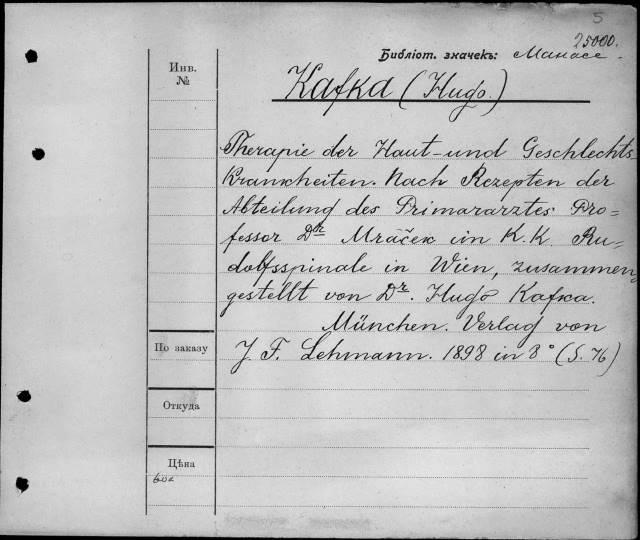 5
25000.
Библіот. значекъ: Манасе.
Инв.
№
Kafka (Hugo.)
Therapie der Haut-und Geschlechts-
Krankheiten. Nach Rezepten der
Abteilung des Primararztes Pro-
fessor Dr. Mráček im K. K. Ru-
dolfsspinale in Wien, zusammen
gestellt von Dr. Hugo Kafka.
München. Verlag von
По заказу
J. F. Lehmann. 1898 in 8° (S. 76)
Откуда
Цѣна